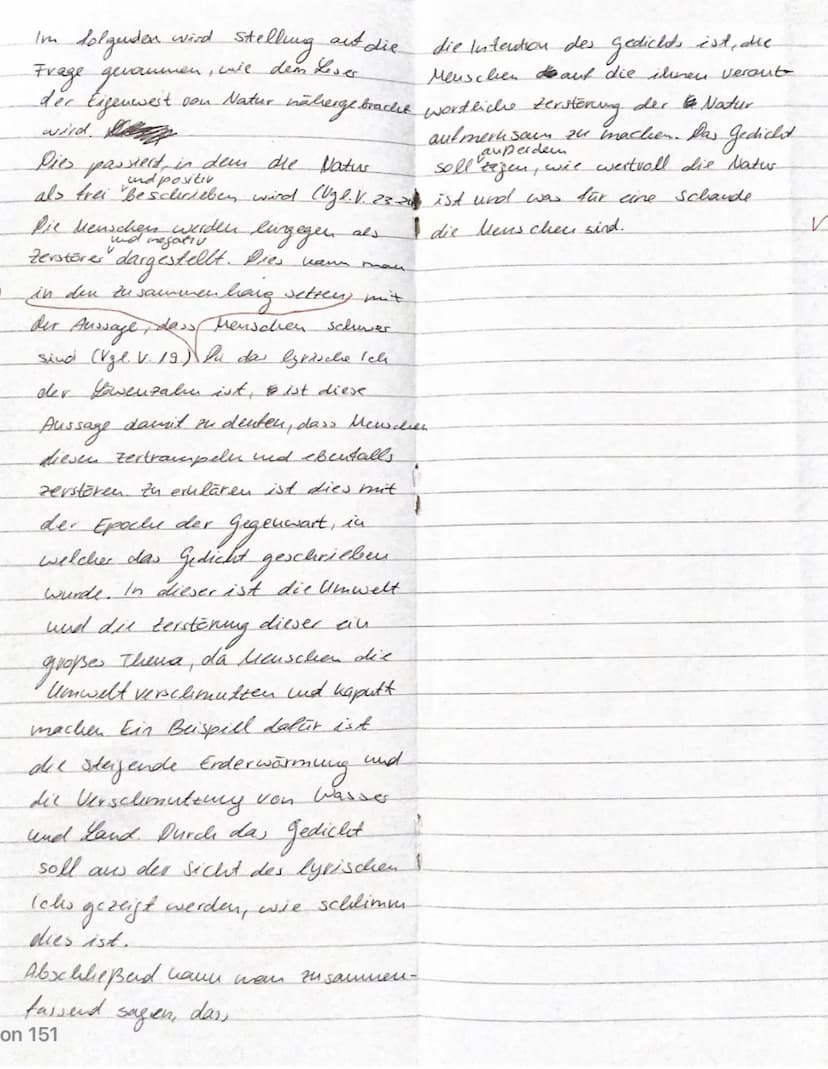 Im folgenden wird Stellung auf die
Frage genommen, wie dem Leser
der Eigenwert von Natur nähergebracht
wird.
Dies passiert, in dem die Natur
als frei und positiv beschrieben wird (Vgl. V. 23-
Die Menschen werden hingegen als
Zerstörer und negativ dargestellt. Dies kann man
in den Zusammenhang setzen mit
der Aussage, dass Menschen schwer
sind (Vgl. V. 19) Da das lyrische Ich
der Löwenzahn ist, ist diese
Aussage damit zu deuten, dass Menschen
diesen zertrampeln und ebenfalls
zerstören. Zu erklären ist dies mit
der Epoche der Gegenwart, in
welcher das Gedicht geschrieben
wurde. In dieser ist die Umwelt
und die Zerstörung dieser ein
großes Thema, da Menschen die
Umwelt verschmutzen und kaputt
machen Ein Beispiel dafür ist
die steigende Erderwärmung und
die Verschmutzung von Wasser
und Land. Durch das Gedicht
soll aus der Sicht des lyrischen
Ichs gezeigt werden, wie schlimm
dies ist.
Abschließend kann man zusammen-
fassend sagen, dass
die Intention des Gedichts ist, die
Menschen auf die ihnen verant-
wortliche Zerstörung der Natur
aufmerksam zu machen. Das Gedicht
soll außerdem zeigen, wie wertvoll die Natur
ist und was für eine Schande
die Menschen sind.
on 151